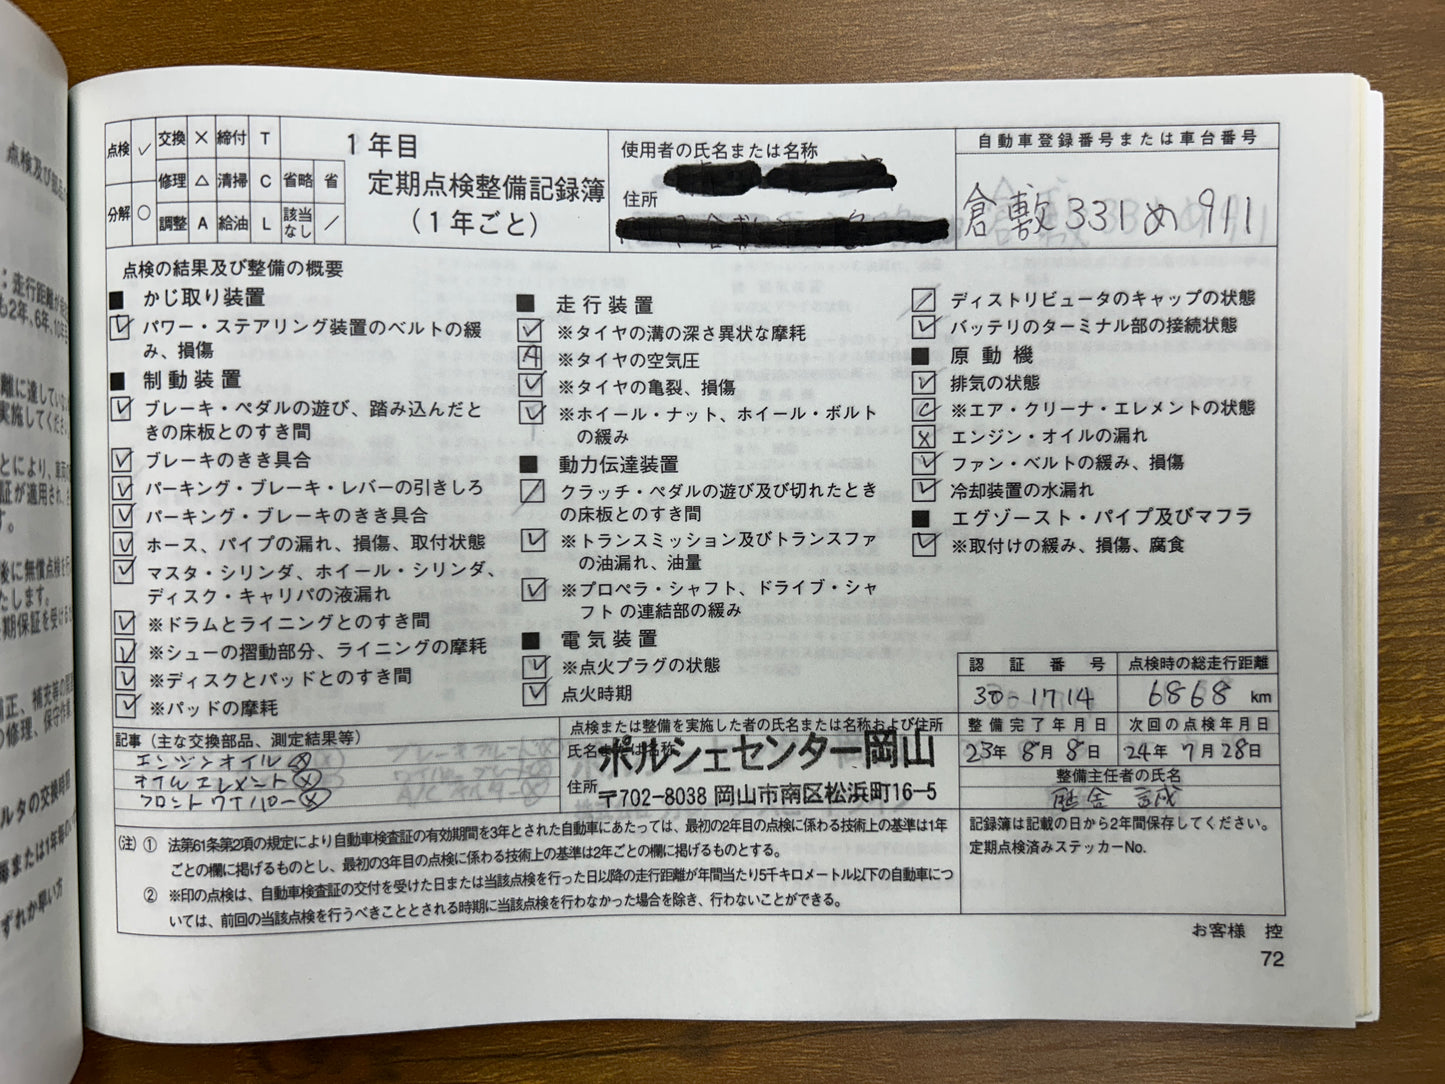 点検 ✓ 交換 × 締付 T
修理 △ 清掃 C 省略 省
分解 ○ 調整 A 給油 L 該当なし ／
1年目
定期点検整備記録簿
(1年ごと)
使用者の氏名または名称
住所
自動車登録番号または車台番号
倉敷 331 め 911
点検の結果及び整備の概要
■ かじ取り装置
✓ パワー・ステアリング装置のベルトの緩
み、損傷
■ 制動装置
✓ ブレーキ・ペダルの遊び、踏み込んだと
きの床板とのすき間
✓ ブレーキのきき具合
✓ パーキング・ブレーキ・レバーの引きしろ
✓ パーキング・ブレーキのきき具合
✓ ホース、パイプの漏れ、損傷、取付状態
✓ マスタ・シリンダ、ホイール・シリンダ、
ディスク・キャリパの液漏れ
✓ ※ドラムとライニングとのすき間
✓ ※シューの摺動部分、ライニングの摩耗
✓ ※ディスクとパッドとのすき間
✓ ※パッドの摩耗
■ 走行装置
✓ ※タイヤの溝の深さ異状な摩耗
A ※タイヤの空気圧
✓ ※タイヤの亀裂、損傷
✓ ※ホイール・ナット、ホイール・ボルト
の緩み
■ 動力伝達装置
／ クラッチ・ペダルの遊び及び切れたとき
の床板とのすき間
✓ ※トランスミッション及びトランスファ
の油漏れ、油量
✓ ※プロペラ・シャフト、ドライブ・シャ
フトの連結部の緩み
■ 電気装置
✓ ※点火プラグの状態
✓ 点火時期
／ ディストリビュータのキャップの状態
✓ バッテリのターミナル部の接続状態
■ 原動機
✓ 排気の状態
C ※エア・クリーナ・エレメントの状態
× エンジン・オイルの漏れ
✓ ファン・ベルトの緩み、損傷
✓ 冷却装置の水漏れ
■ エグゾースト・パイプ及びマフラ
✓ ※取付けの緩み、損傷、腐食
認証番号 点検時の総走行距離
30-1714 6868 km
整備完了年月日 次回の点検年月日
23年 8月 8日 24年 7月 28日
整備主任者の氏名
誠
記事(主な交換部品、測定結果等)
エンジンオイル ⊗
オイルエレメント ⊗
フロントワイパー ⊗
点検または整備を実施した者の氏名または名称および住所
氏名または名称 ポルシェセンター岡山
住所 〒702-8038 岡山市南区松浜町16-5
(注) ① 法第61条第2項の規定により自動車検査証の有効期間を3年とされた自動車にあたっては、最初の2年目の点検に係わる技術上の基準は1年
ごとの欄に掲げるものとし、最初の3年目の点検に係わる技術上の基準は2年ごとの欄に掲げるものとする。
② ※印の点検は、自動車検査証の交付を受けた日または当該点検を行った日以降の走行距離が年間当たり5千キロメートル以下の自動車につ
いては、前回の当該点検を行うべきこととされる時期に当該点検を行わなかった場合を除き、行わないことができる。
記録簿は記載の日から2年間保存してください。
定期点検済みステッカーNo.
お客様 控
72